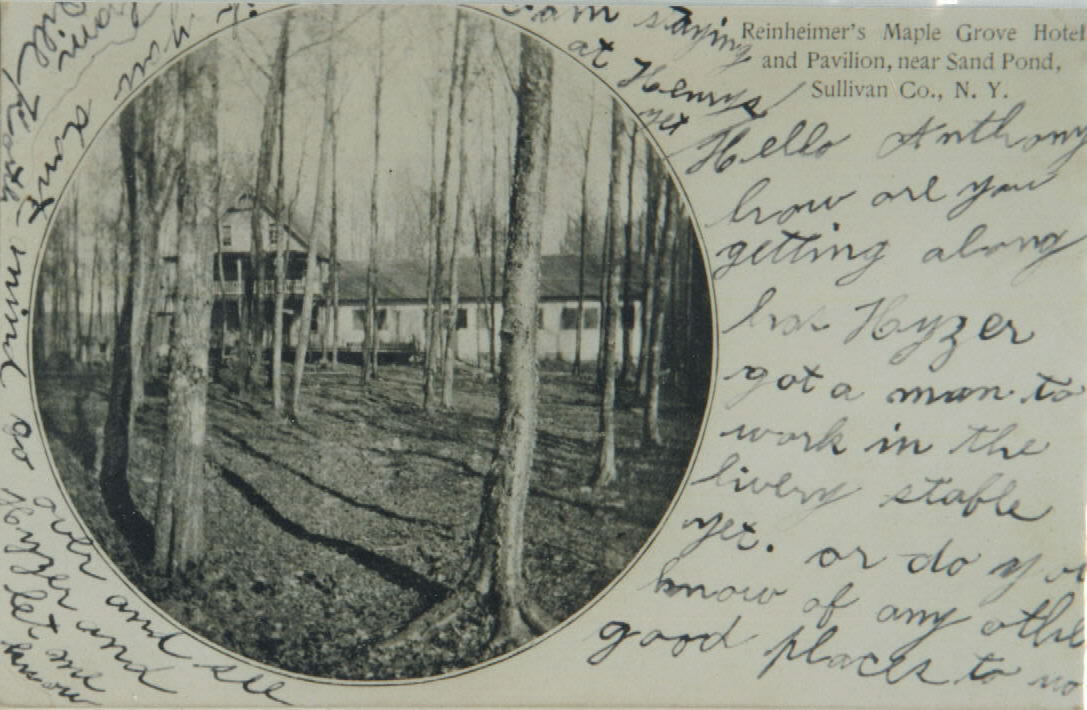 Reinheimer's Maple Grove Hotel
and Pavilion, near Sand Pond,
Sullivan Co., N. Y.
Hello Anthony
how are you
getting along
has Hyzer
got a man to
work in the
livery stable
yet. or do you
know of any other
good places to
mind go
over and see
Hyzer and
let me
know
I am staying
at Henrys
yet